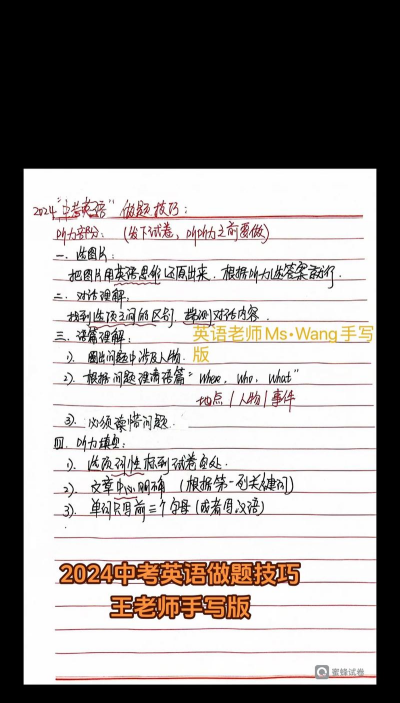 2024"中考英语"做题技巧：
听力部分：（发下试卷，听听力之前要做）
一、选图片：
把图片用英语思维还原出来，根据听力选答案就行.
二、对话理解：
找到选项之间的区别，推测对话内容.
英语老师Ms·Wang手写版
三、语篇理解：
1）. 圈出问题中涉及人物.
2）. 根据问题理清语篇"where，who，what"
地点 / 人物 / 事件
3）. 必须读懂问题.
四、听力填空：
1）. 选项词性标到试卷空处.
2）. 文章中心明确（根据第一列关键词）
3）. 单词只用前三个字母（或者用汉语）
2024中考英语做题技巧
王老师手写版
蜜蜂试卷